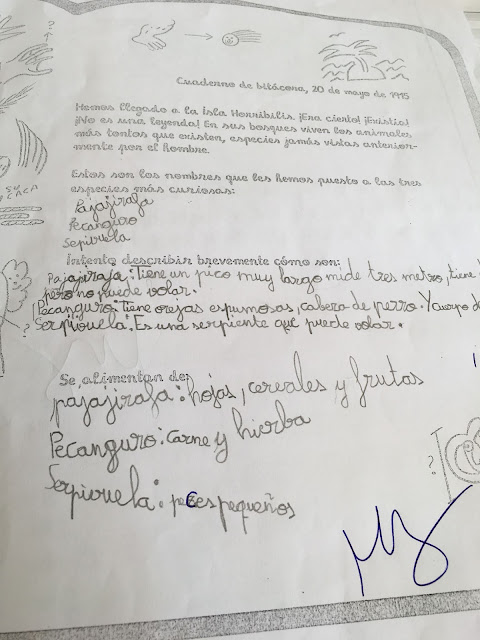 Cuaderno de bitácora, 20 de mayo de 1915
Hemos llegado a la isla Horribilis. ¡Era cierto! ¡Existía!
¡No es una leyenda! En sus bosques viven los animales
más tontos que existen, especies jamás vistas anterior-
mente por el hombre.
Estos son los nombres que les hemos puesto a las tres
especies más curiosas:
Pajajirafa
Pecanguro
Serpivuela
Intento describir brevemente cómo son:
Pajajirafa: Tiene un pico muy largo mide tres metro, tiene
pero no puede volar.
Pecanguro: Tiene orejas espumosas, cabera de perro. Y cuerpo de
Serpivuela: Es una serpiente que puede volar.
Se alimentan de:
pajajirafa: hojas, cereales y frutas
Pecanguro: carne y hierba
Serpivuela: peces pequeños